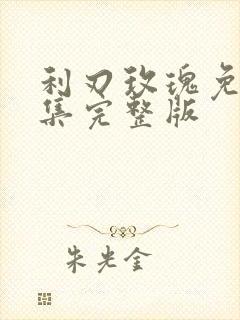 利刃玫瑰免
集完整版
朱光金